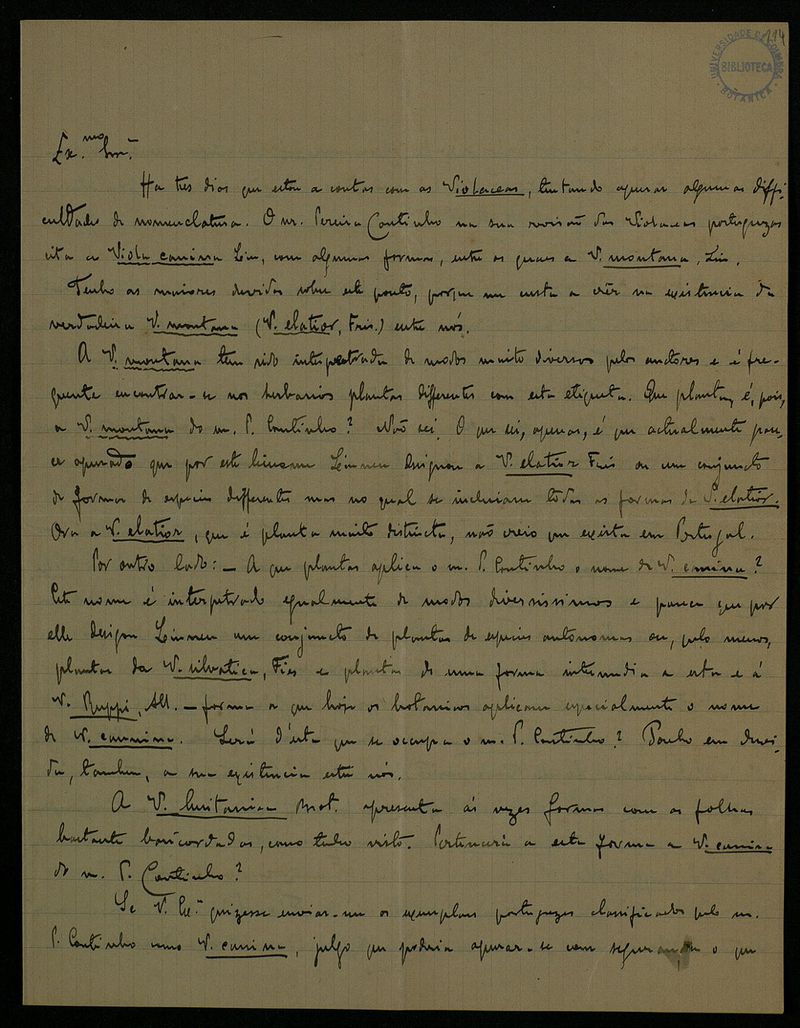 114
UNIVERSIDADE DE COIMBRA
BIBLIOTECA
BOTANICA
Ex.mo Snr.
Ha tres dias que estou a contas com as Violaceas, tentando apurar algumas diffi-
culdades de nomenclatura. O sr. Pereira Coutinho na sua revisão das Violaceas portuguezas
cita a Viola canina Lin, com algumas formas, entre as quaes a V. montana, Lin.
Tenho as maiores duvidas sobre este ponto, porque me custa a crêr na existencia da
verdadeira V. montana (V. elatior, Fries.) entre nós.
A V. montana tem sido interpretrada de modos muito diversos pelos auctores e é fre-
quente encontrar-se nos herbarios plantas differentes com esta etiqueta. Que planta, é, pois,
a V. montana do sr. P. Coutinho? Não sei. O que sei, apenas, é que actualmente pare-
ce apurado que por este binome Linneu designou a V. elatior Fries ou um conjuncto
de formas de especies differentes mas no qual se incluiam todas as formas da V. elatior.
Ora a V. elatior, que é planta muito distincta, não creio que exista em Portugal.
Por outro lado: — A que plantas aplica o sr. P. Coutinho o nome de V. canina?
Este nome é interpetrado egualmente de modos diversissimos e parece que por
elle designou Linneu um conjuncto de plantas de especies autonomas ou, pelo menos,
plantas da V. silvatica, Fries e plantas de uma forma intermedia a esta e á
V. Ruppi, All. — forma a que hoje os botanicos aplicam especialmente o nome
de V. canina. Será d'esta que se occupa o sr. P. Coutinho? Ponho em duvi-
da, tambem, a sua existencia entre nós.
A V. lusitanica Brot. apresenta ás vezes formas com as folhas
bastante cordadas, como tenho visto. Pertencerá a esta forma a V. canina
do sr. P. Coutinho?
Se V. Ex.a quizesse enviar-me os exemplares portuguezes classificados pelo sr.
P. Coutinho como V. canina, julgo que poderia apurar-se com segurança o que